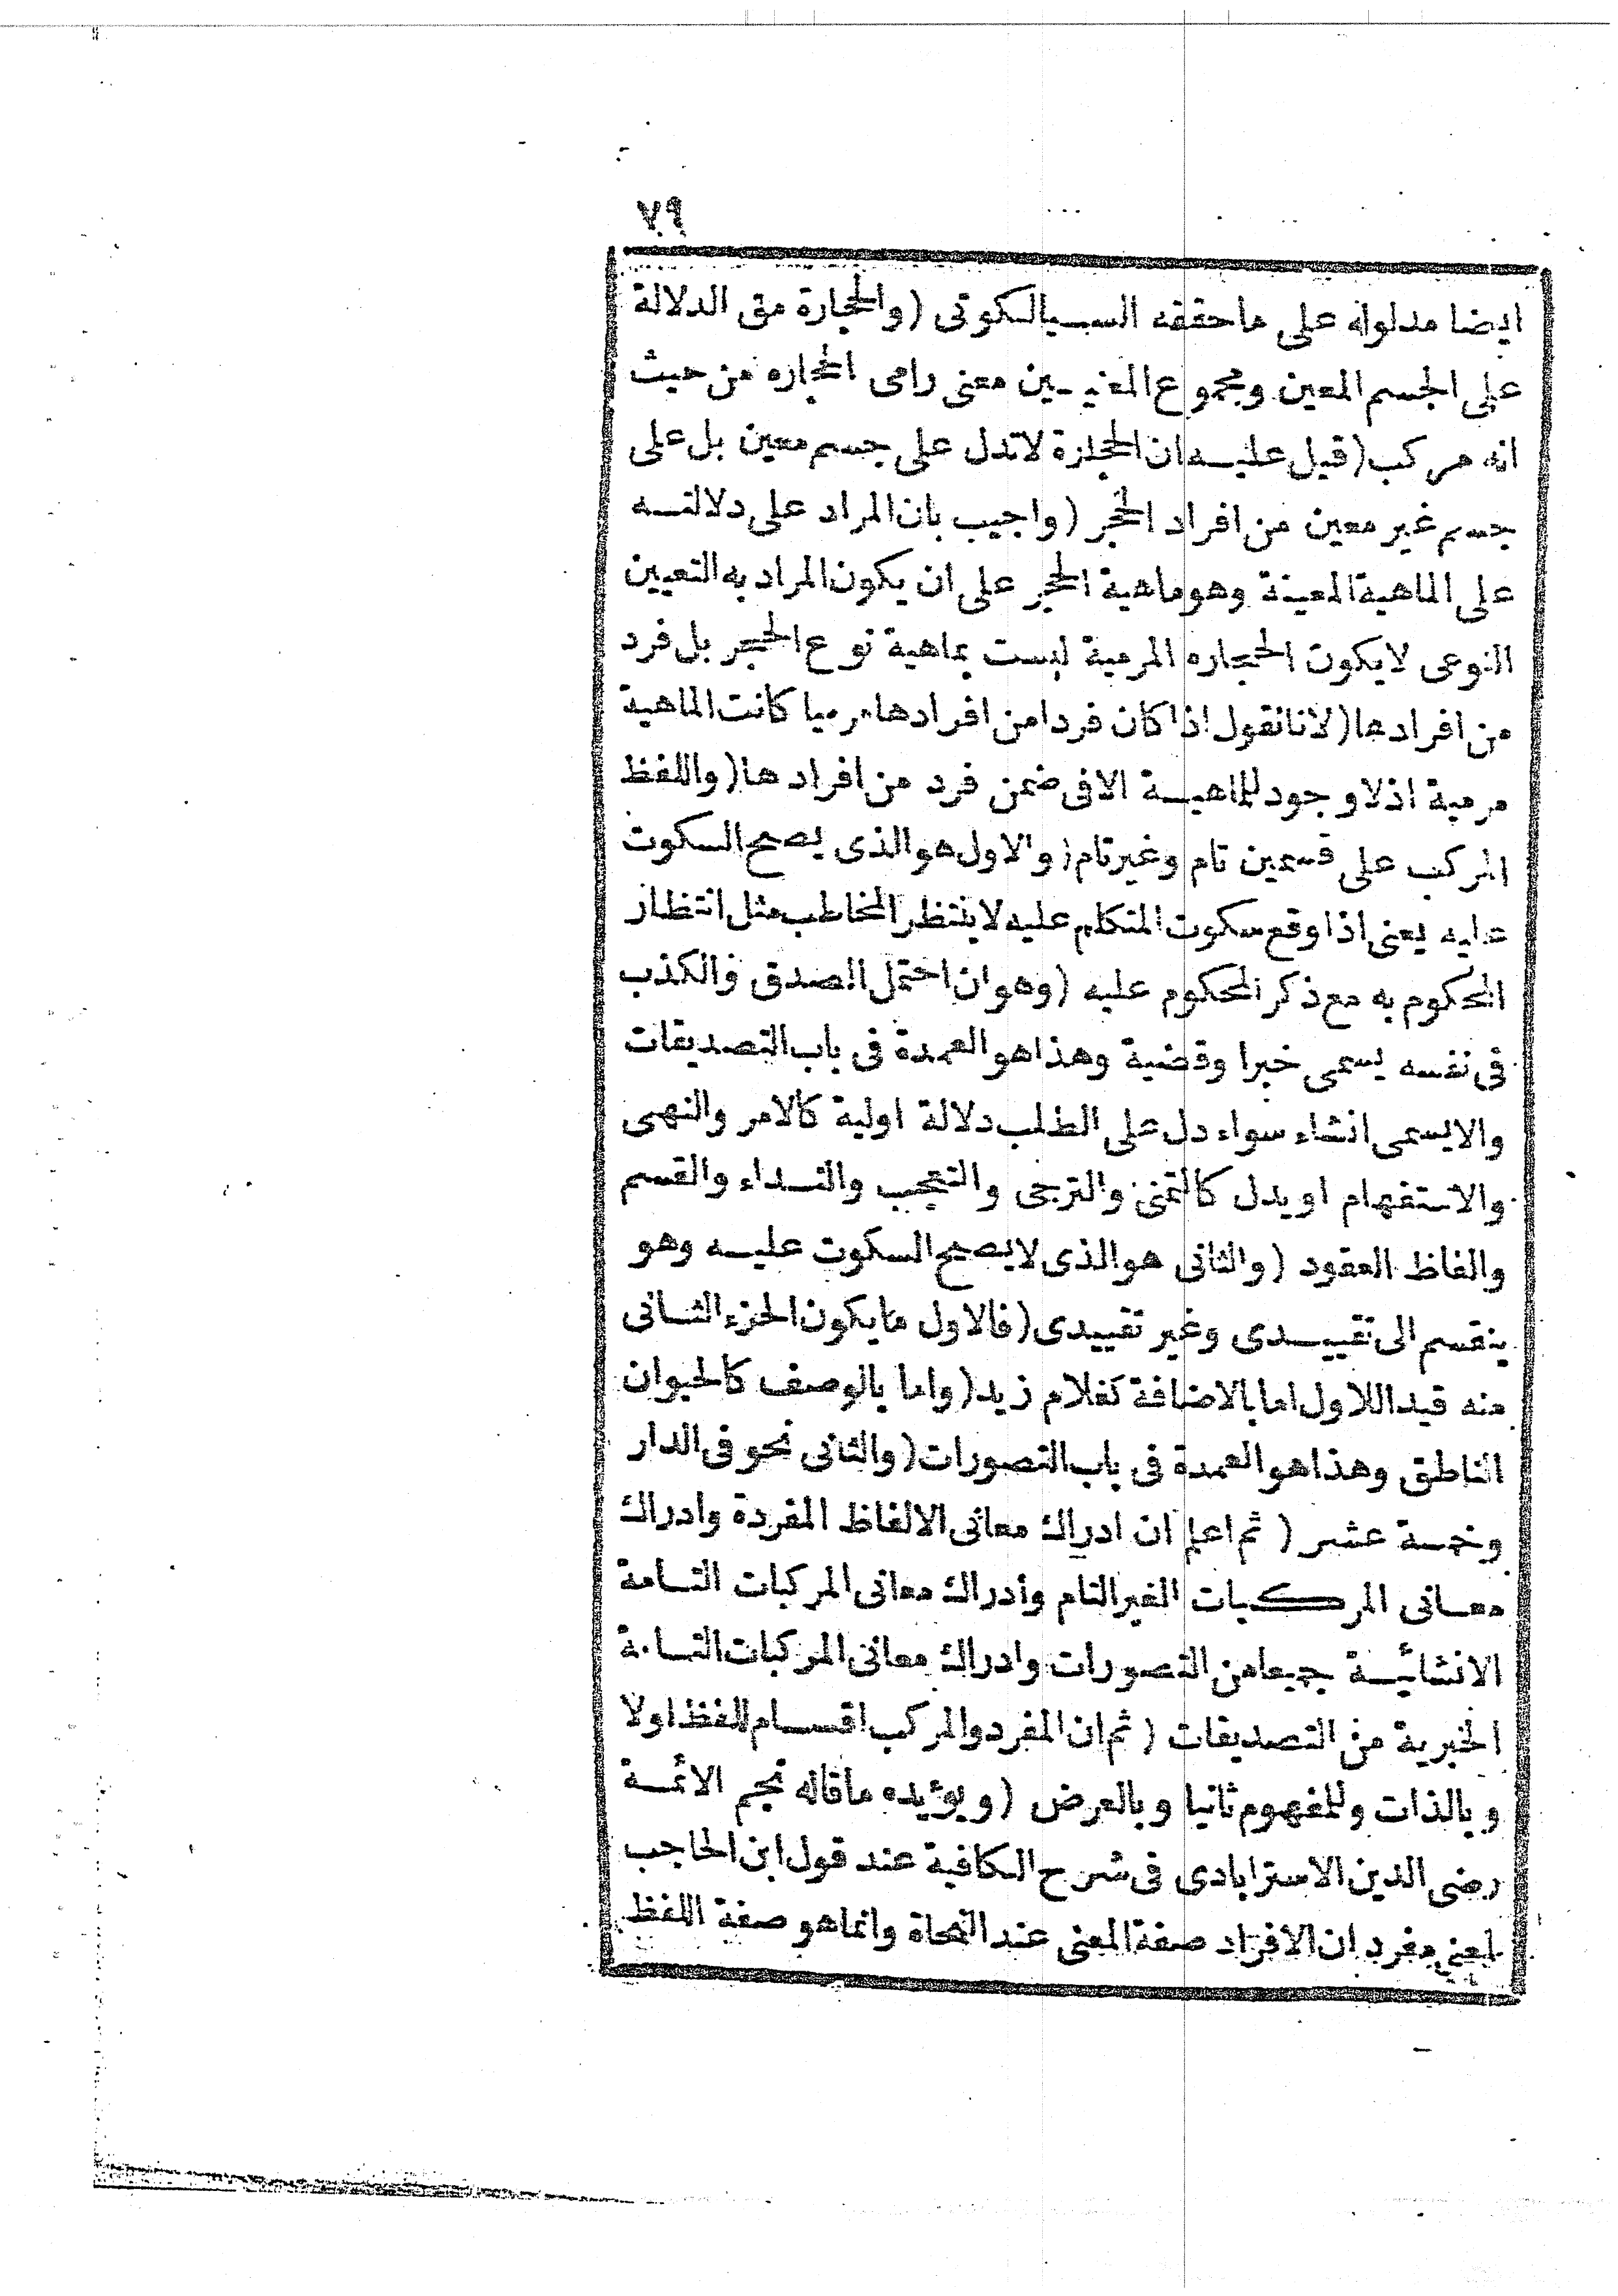 ٧٩
ايضا مدلوله على ما حققه السيالكوتى (والحجارة متى الدلالة
على الجسم المعين ومجموع المعنيين معنى رامى الحجاره من حيث
انه مركب (قيل عليه ان الحجارة لا تدل على جسم معين بل على
جسم غير معين من افراد الحجر (واجيب بان المراد على دلالته
على الماهية المعينة وهو ماهية الحجر على ان يكون المراد به التعيين
النوعى لا يكون الحجاره المرمية ليست بماهية نوع الحجر بل فرد
من افرادها (لانا نقول اذا كان فردا من افرادها مرميا كانت الماهية
مرمية اذ لا وجود للماهية الا فى ضمن فرد من افرادها (واللفظ
المركب على قسمين تام وغير تام (والاول هو الذى يصح السكوت
عليه يعنى اذا وقع سكوت المتكلم عليه لا ينتظر المخاطب مثل انتظار
المحكوم به مع ذكر المحكوم عليه (وهو ان احتمل الصدق والكذب
فى نفسه يسمى خبرا وقضية وهذا هو العمدة فى باب التصديقات
والا يسمى انشاء سواء دل على الطلب دلالة اولية كالامر والنهى
والاستفهام او يدل كالتمنى والترجى والتعجب والنداء والقسم
والفاظ العقود (والثانى هو الذى لا يصح السكوت عليه وهو
ينقسم الى تقييدى وغير تقييدى (فالاول ما يكون الجزء الثانى
منه قيدا للاول اما بالاضافة كغلام زيد (واما بالوصف كالحيوان
الناطق وهذا هو العمدة فى باب التصورات (والثانى نحو فى الدار
وخمسة عشر (ثم اعلم ان ادراك معانى الالفاظ المفردة وادراك
معانى المركبات الغير التام وأدراك معانى المركبات التامة
الانشائية جميعا من التصورات وادراك معانى المركبات التامة
الخبرية من التصديقات (ثم ان المفرد والمركب اقسام للفظ اولا
وبالذات وللمفهوم ثانيا وبالعرض (ويؤيده ما قاله نجم الائمة
رضى الدين الاسترابادى فى شرح الكافية عند قول ابن الحاجب
لمعنى مفرد ان الافراد صفة المعنى عند النحاة وانما هو صفة اللفظ